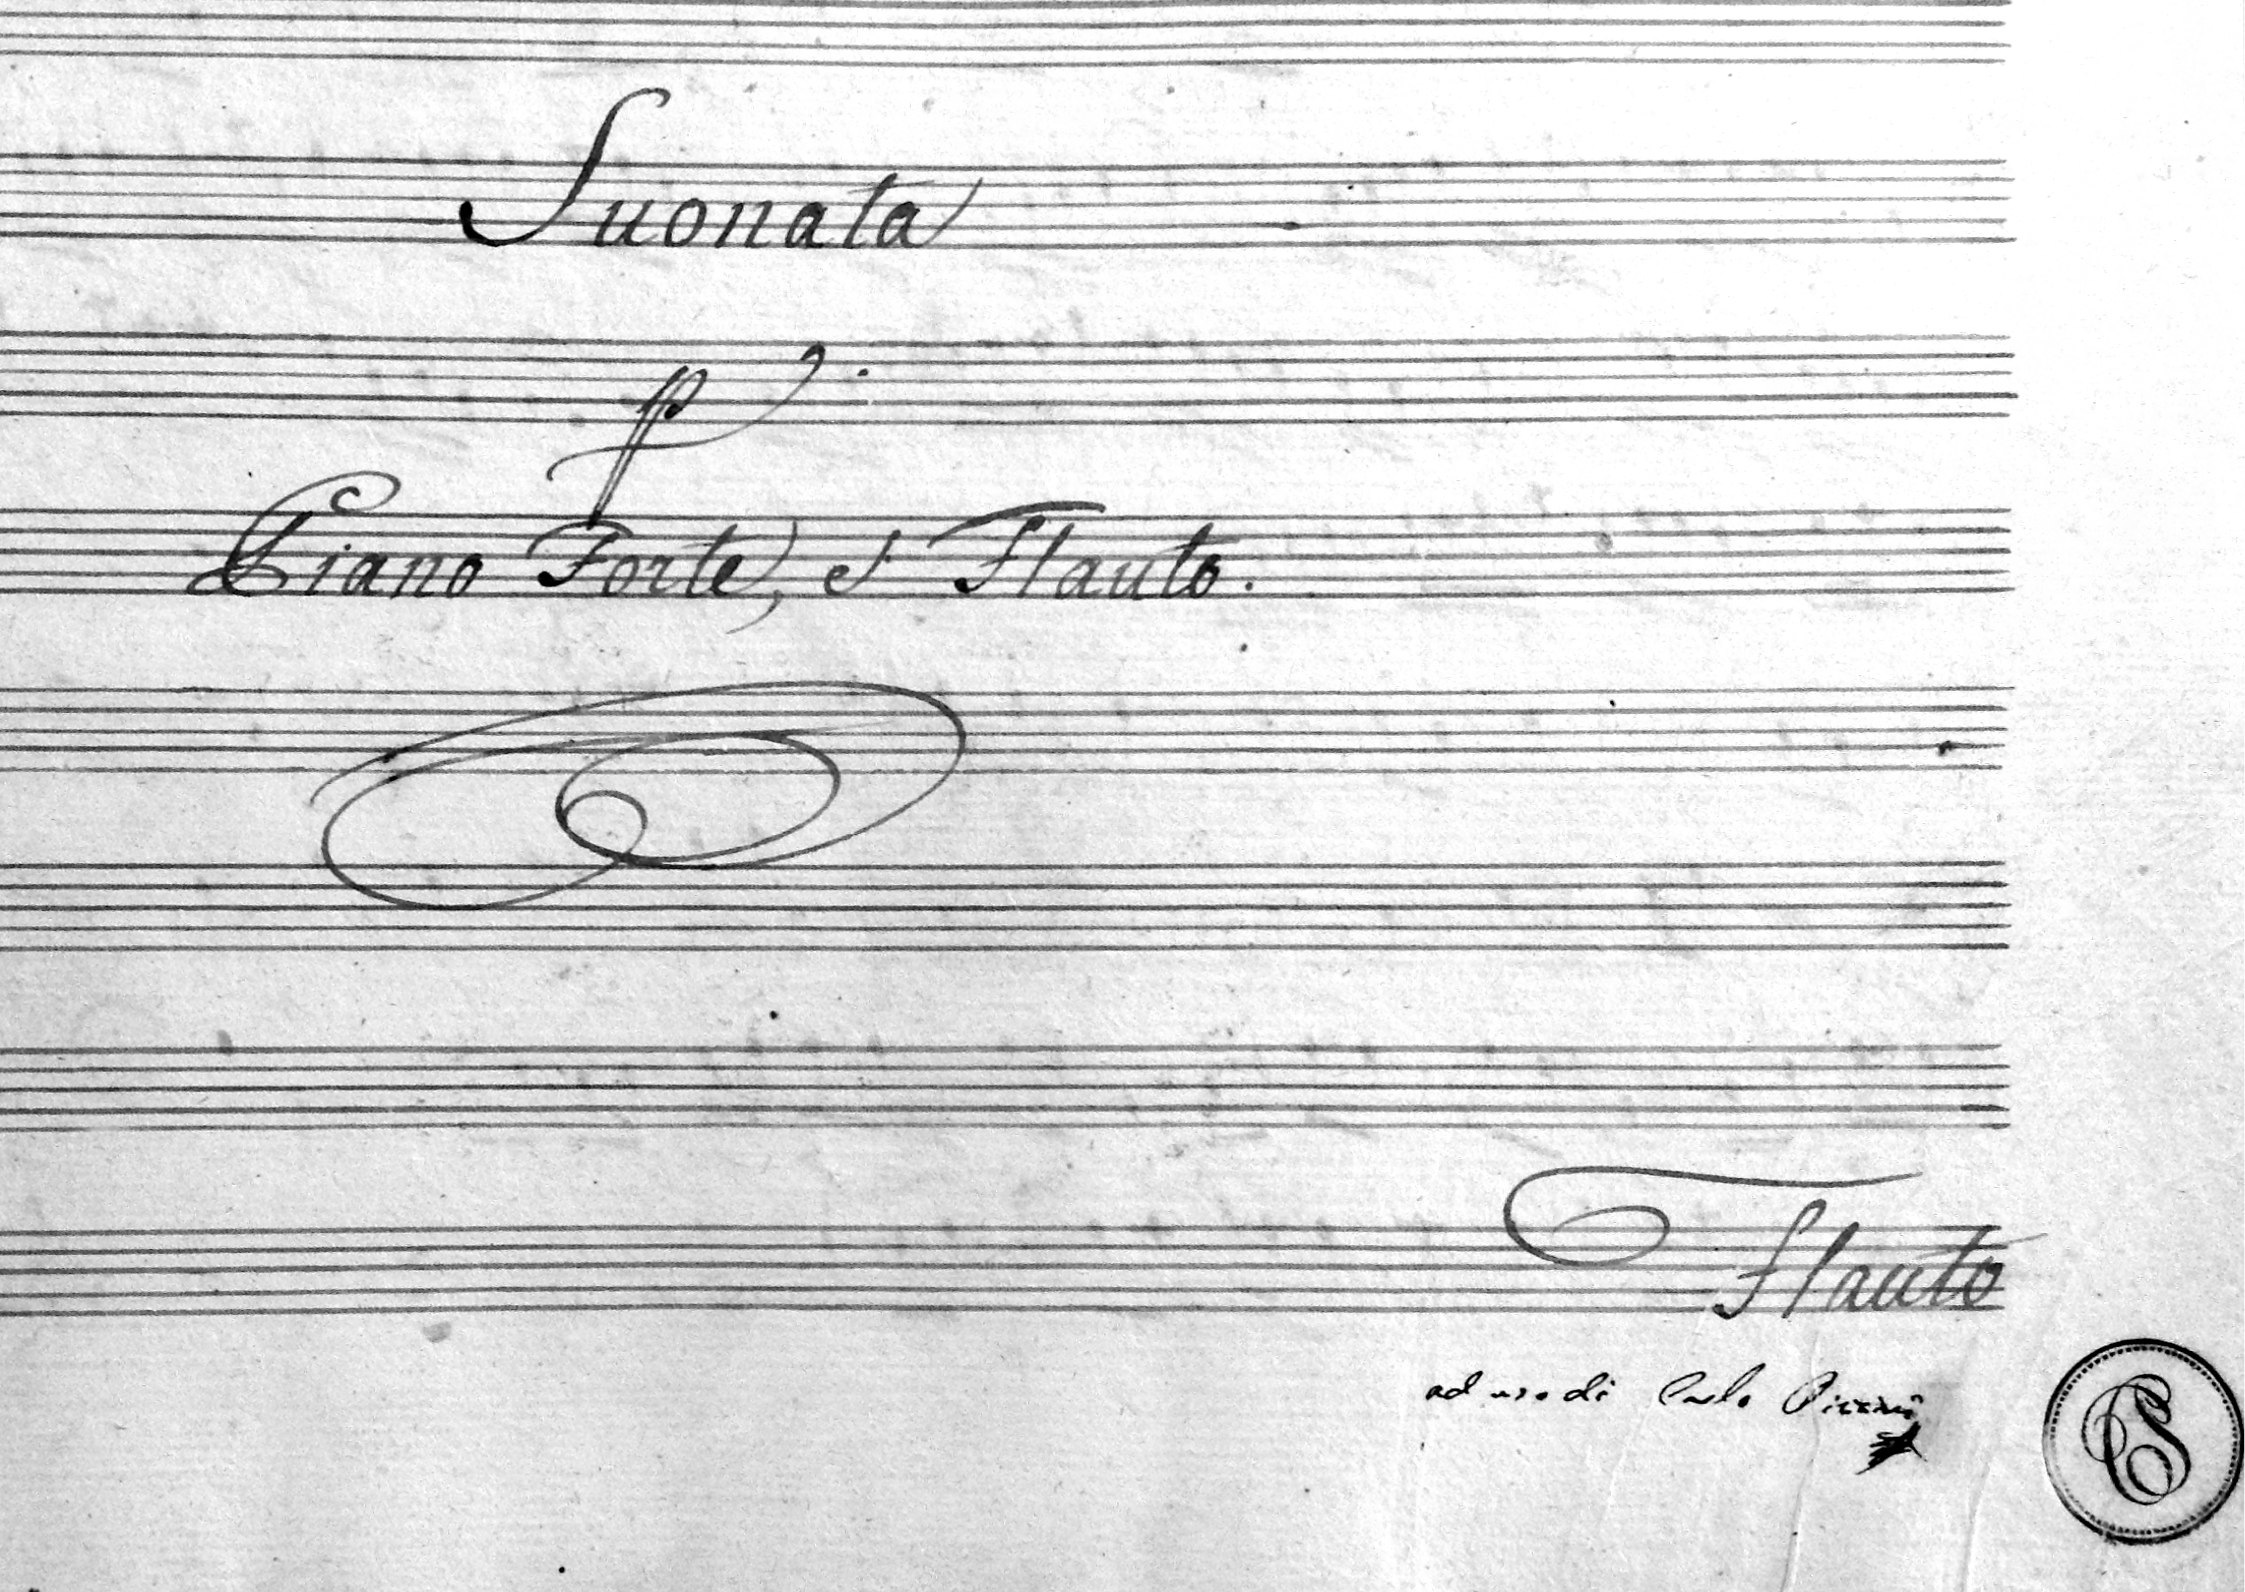 Suonata
p.
Piano Forte, e Flauto.
Flauto
ad uso di Carlo Piccini